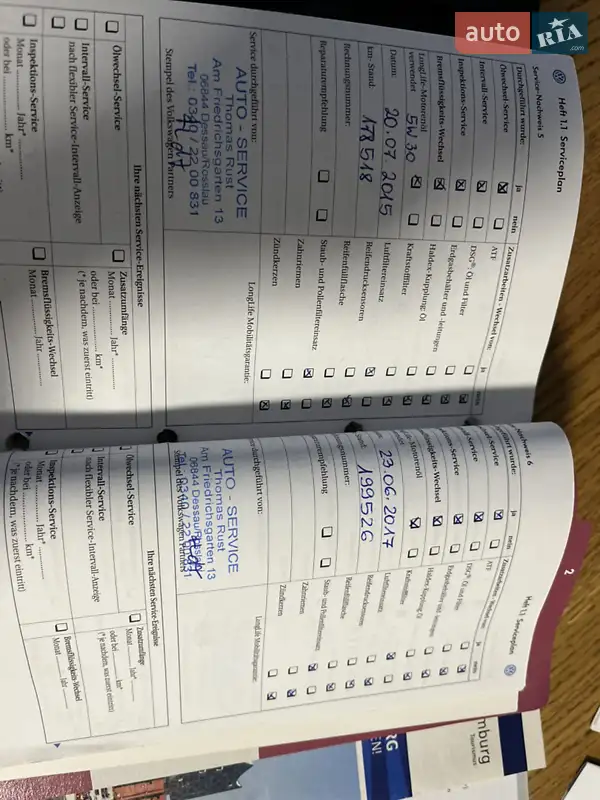 auto
RIA
.com
Heft 1.1 Serviceplan
Service-Nachweis 5
Durchgeführt wurde:
ja
nein
Ölwechsel-Service
Intervall-Service
Inspektions-Service
Bremsflüssigkeits-Wechsel
LongLife-Motorenöl
verwendet
5W30
Datum:
20.07 2015
km-Stand:
178518
Rechnungsnummer:
Reparaturempfehlung
Service durchgeführt von:
AUTO - SERVICE
Thomas Rust
Am Friedrichsgarten 13
06844 Dessau/Rosslau
Tel.: 0340 / 22 00 831
Stempel des Volkswagen Partners
Zusatzarbeiten - Wechsel von:
ja
nein
ATF
DSG®: Öl und Filter
Erdgasbehälter und -leitungen
Haldex-Kupplung: Öl
Kraftstofffilter
Luftfiltereinsatz
Reifendrucksensoren
Reifenfüllflasche
Staub- und Pollenfiltereinsatz
Zahnriemen
Zündkerzen
LongLife Mobilitätsgarantie:
Ihre nächsten Service-Ereignisse
Ölwechsel-Service
Intervall-Service
nach flexibler Service-Intervall-Anzeige
Inspektions-Service
Monat ........ Jahr* ........
oder bei ........ km*
Zusatzumfänge
Monat ........ Jahr* ........
oder bei ........ km*
(* je nachdem, was zuerst eintritt)
Bremsflüssigkeits-Wechsel
Monat ........ Jahr ........
2
Heft 1.1 Serviceplan
Nachweis 6
führt wurde:
ja
nein
sel-Service
Service
ns-Service
ssigkeits-Wechsel
Motorenöl
23.06.2017
199526
gsnummer:
urempfehlung
durchgeführt von:
AUTO - SERVICE
Thomas Rust
Am Friedrichsgarten 13
06844 Dessau/Rosslau
Zusatzarbeiten - Wechsel von:
ja
nein
ATF
DSG®: Öl und Filter
Erdgasbehälter und -leitungen
Haldex-Kupplung: Öl
Kraftstofffilter
Luftfiltereinsatz
Reifendrucksensoren
Reifenfüllflasche
Staub- und Pollenfiltereinsatz
Zahnriemen
Zündkerzen
LongLife Mobilitätsgarantie:
Ihre nächsten Service-Ereignisse
Ölwechsel-Service
Intervall-Service
nach flexibler Service-Intervall-Anzeige
Inspektions-Service
Monat ........ Jahr* ........
oder bei ........ km*
(* je nachdem, was zuerst eintritt)
Zusatzumfänge
Monat ........ Jahr* ........
oder bei ........ km*
(* je nachdem, was zuerst eintritt)
Bremsflüssigkeits-Wechsel
Monat ........ Jahr ........
mburg
Tourismus
RG
EN!